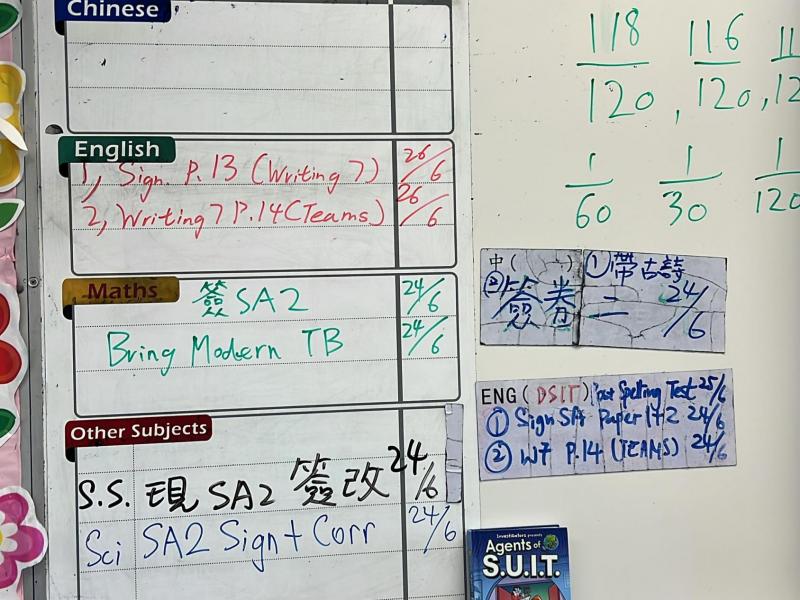 Chinese
English
1, Sign. P.13 (Writing 7) 26/6
2, Writing 7 P.14 (Teams) 26/6
Maths
簽 SA2 24/6
Bring Modern TB 24/6
Other Subjects
S.S. 現 SA2 簽改 24/6
Sci SA2 Sign + Corr 24/6
118/120, 116/120, 11
1/60 1/30 1/120
中( ) ① 帶古詩
② 簽卷二 24/6
ENG (DSIT) Spelling Test 25/6
① Sign SA Paper 1+2 24/6
② W7 P.14 (TEAMS) 24/6
InvestiGators presents
Agents of
S.U.I.T.